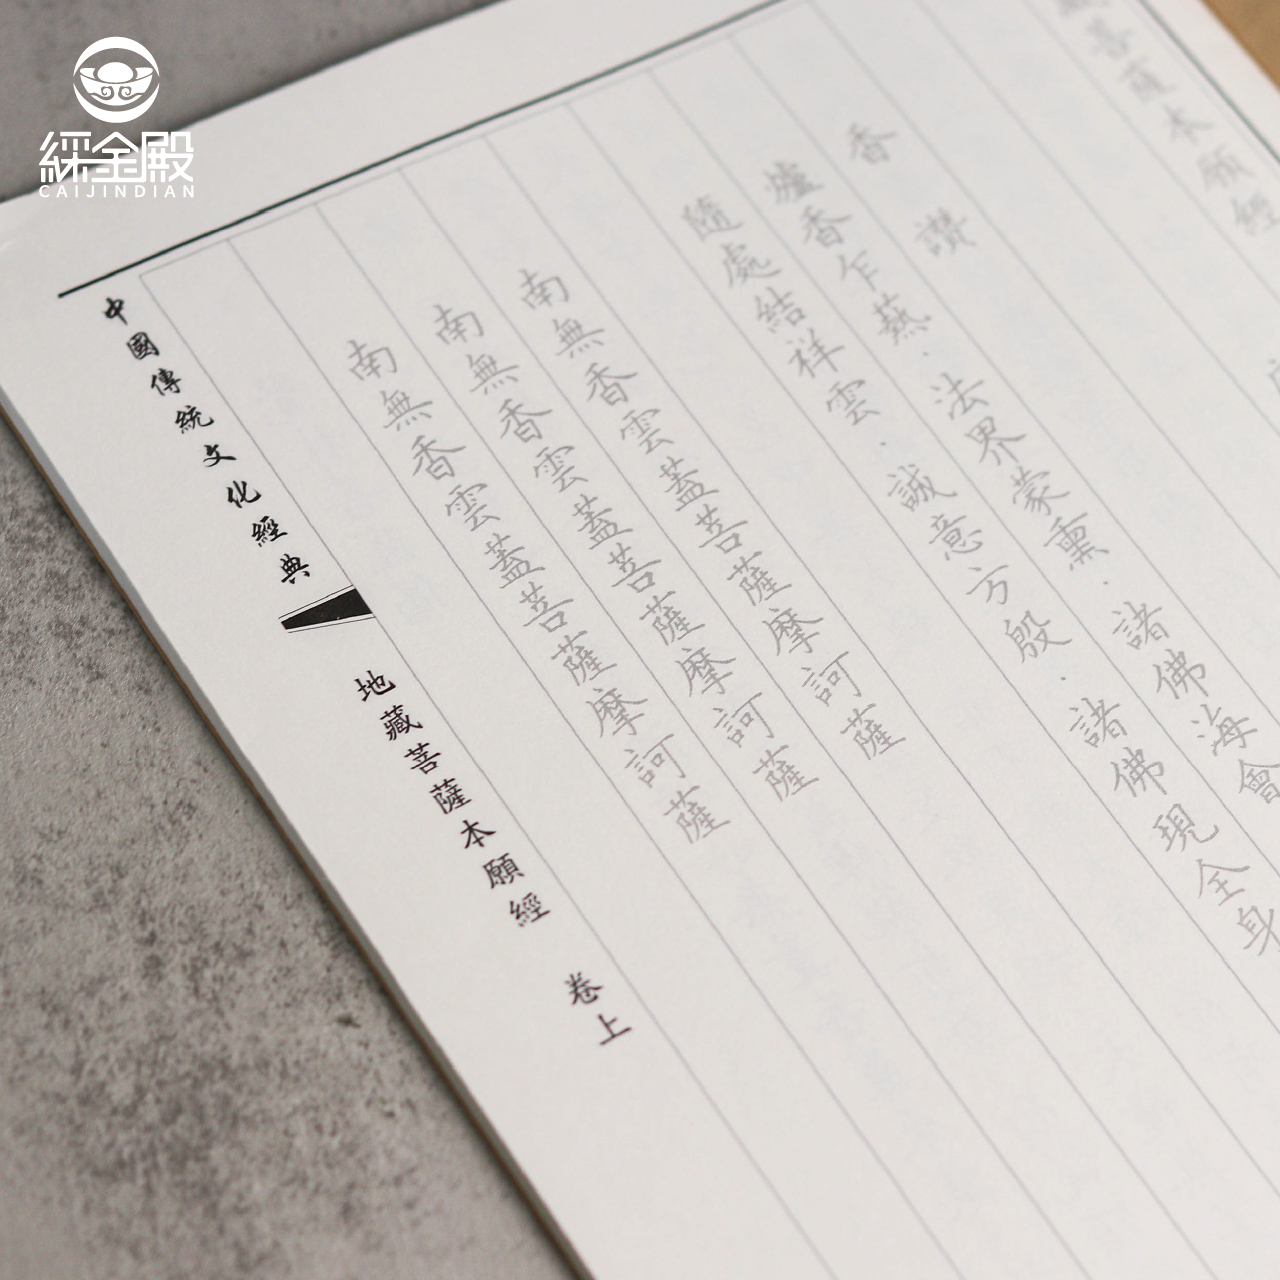 綵金殿
CAIJINDIAN
菩薩本願經
香讚
爐香乍爇．法界蒙熏．諸佛海會
隨處結祥雲．誠意方殷．諸佛現全身
南無香雲蓋菩薩摩訶薩
南無香雲蓋菩薩摩訶薩
南無香雲蓋菩薩摩訶薩
中國傳統文化經典
地藏菩薩本願經 卷上